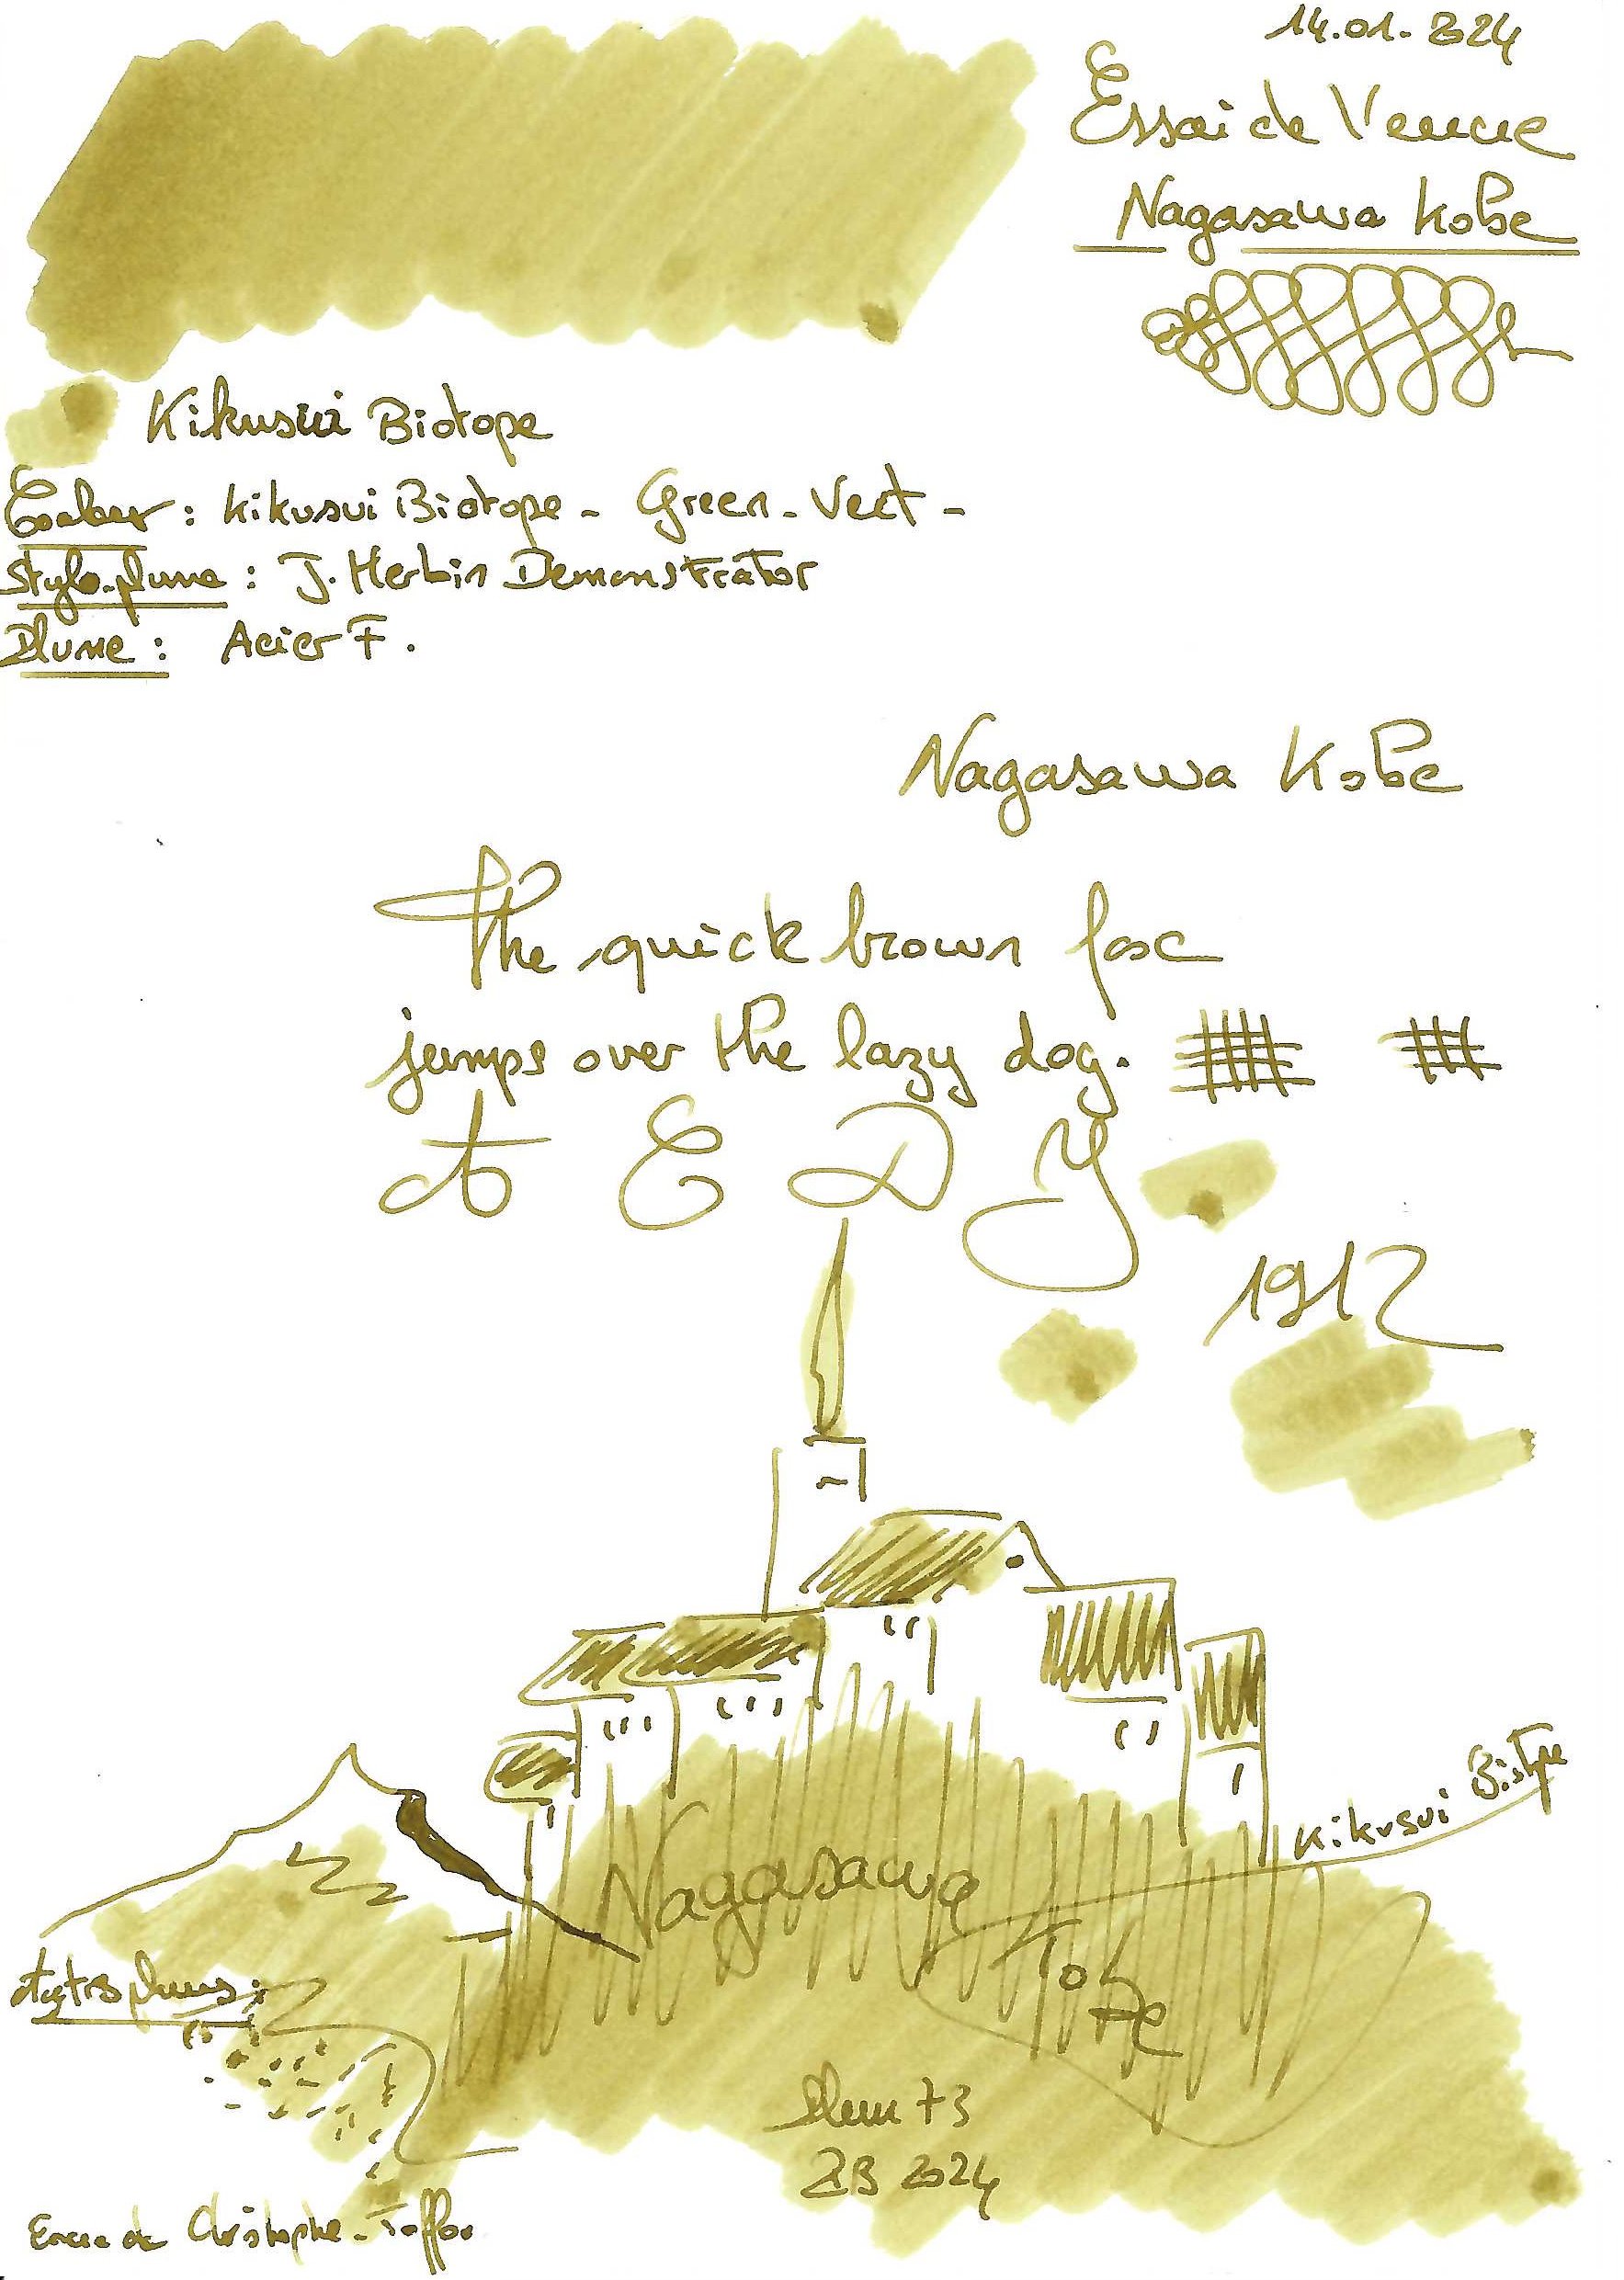 14.01.2024
Essai de l'encre
Nagasawa Kobe
Kikusui Biotope
Couleur : Kikusui Biotope - Green - Vert -
Stylo.plume : J. Herbin Demonstrator
Plume : Acier F.
Nagasawa Kobe
The quick brown fox
jumps over the lazy dog.
A E D Y
1912
Kikusui
Nagasawa
Kobe
2024
Encre de Christophe -